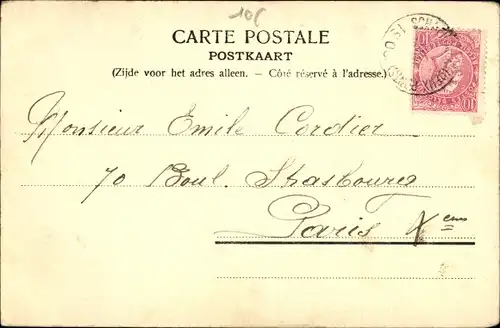 10c
CARTE POSTALE
POSTKAART
(Zijde voor het adres alleen. – Côté réservé à l'adresse.)
Monsieur Emile Cordier
70 Boul. Strasbourg
Paris Xeme